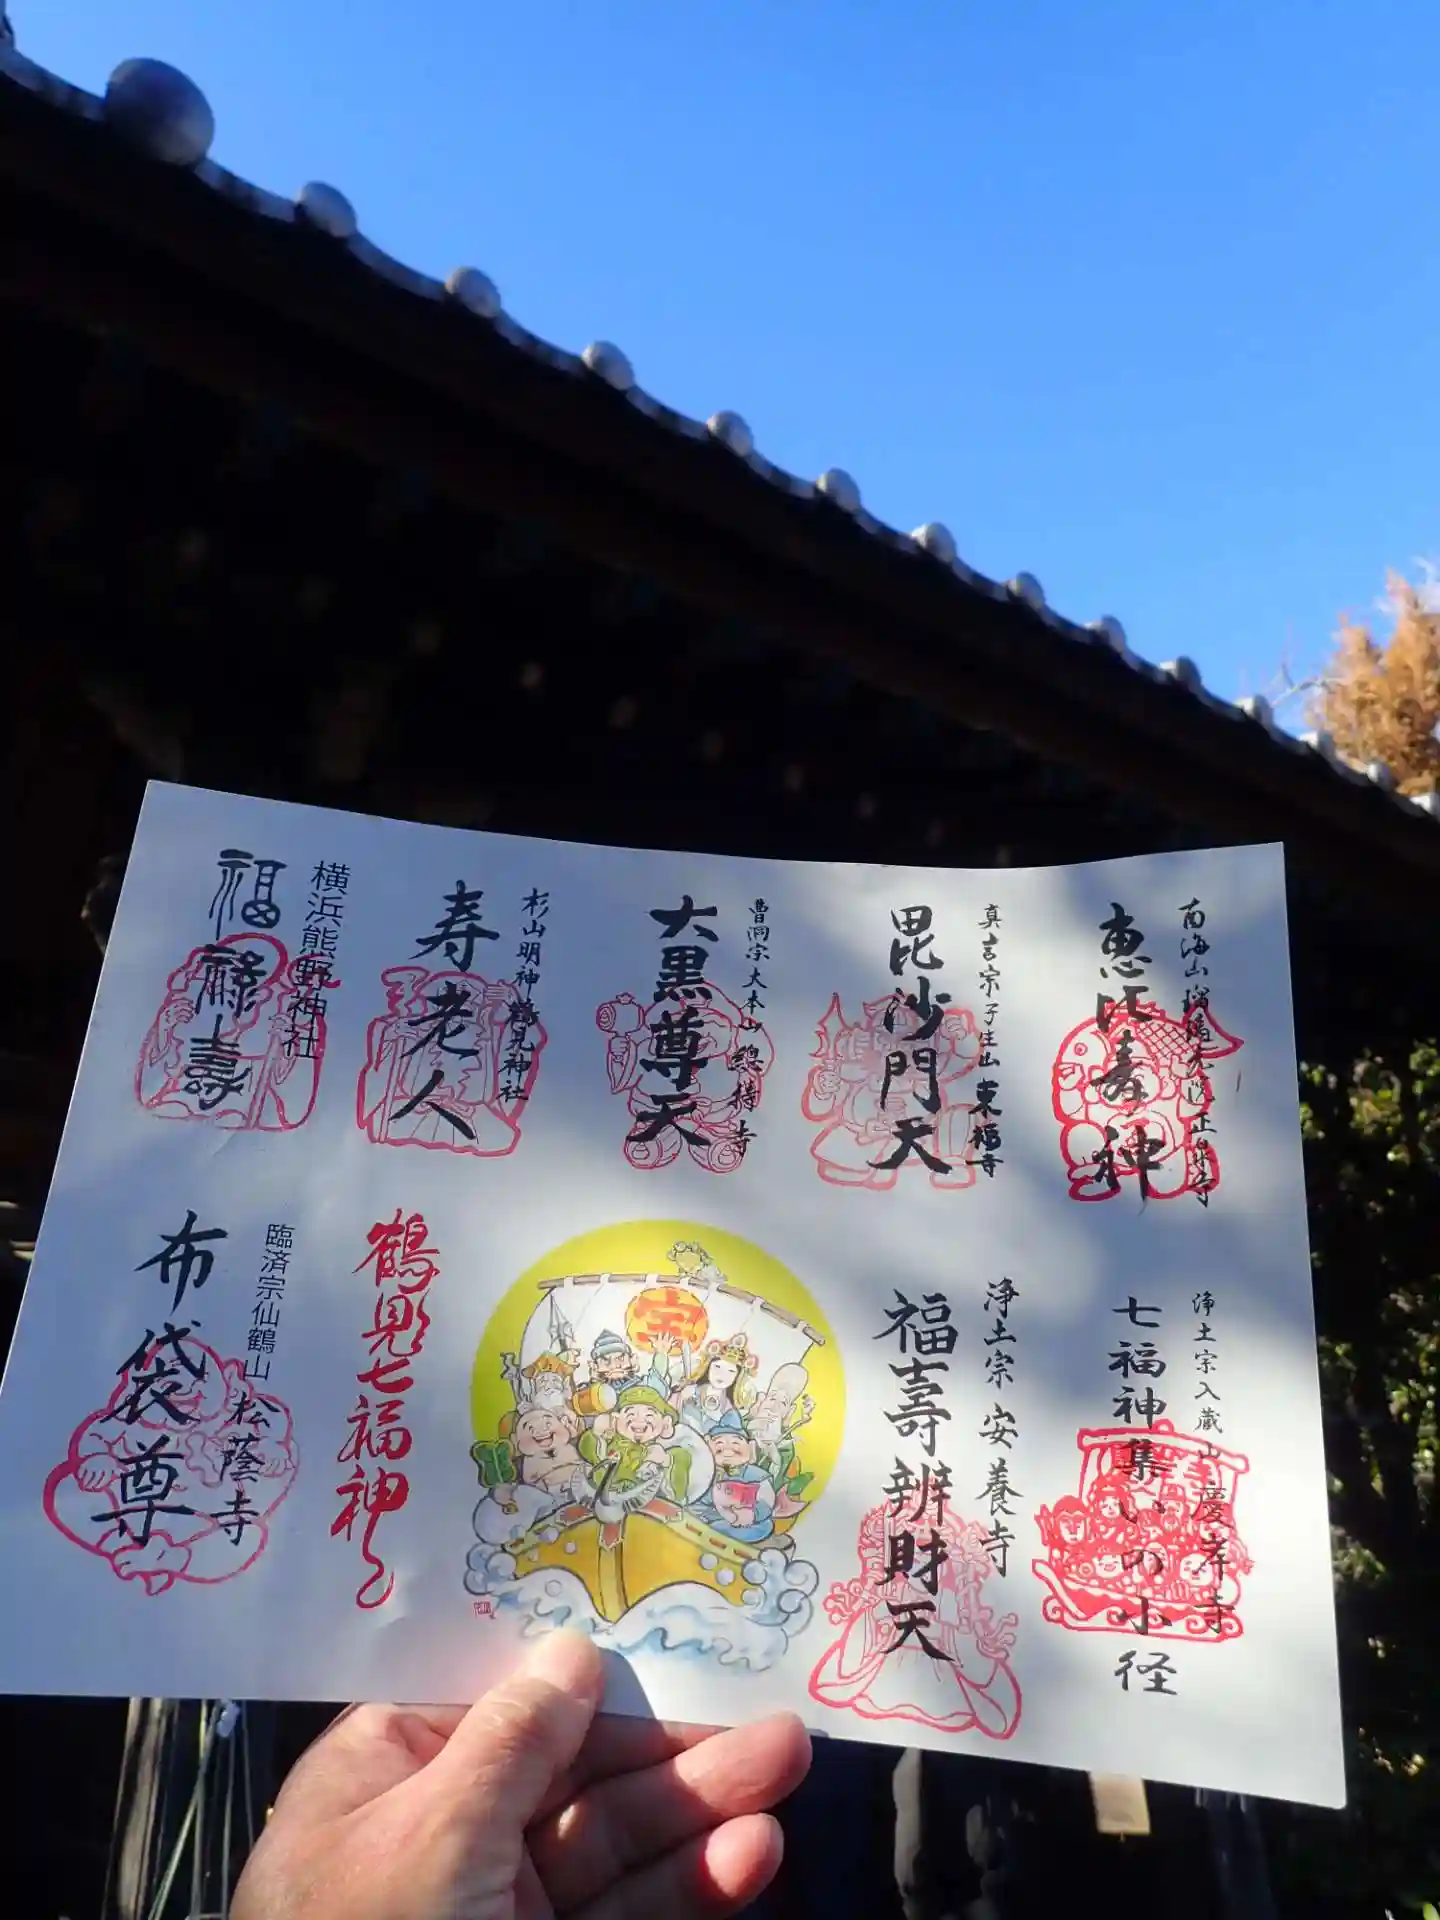 南海山瑞船大院正泉寺
恵比寿神
真言宗子生山東福寺
毘沙門天
曹洞宗大本山總持寺
大黒尊天
杉山明神鶴見神社
寿老人
横浜熊野神社
福禄壽
浄土宗入蔵山慶岸寺
七福神集いの小径
浄土宗安養寺
福壽辨財天
宝
鶴見七福神
臨済宗仙鶴山松蔭寺
布袋尊